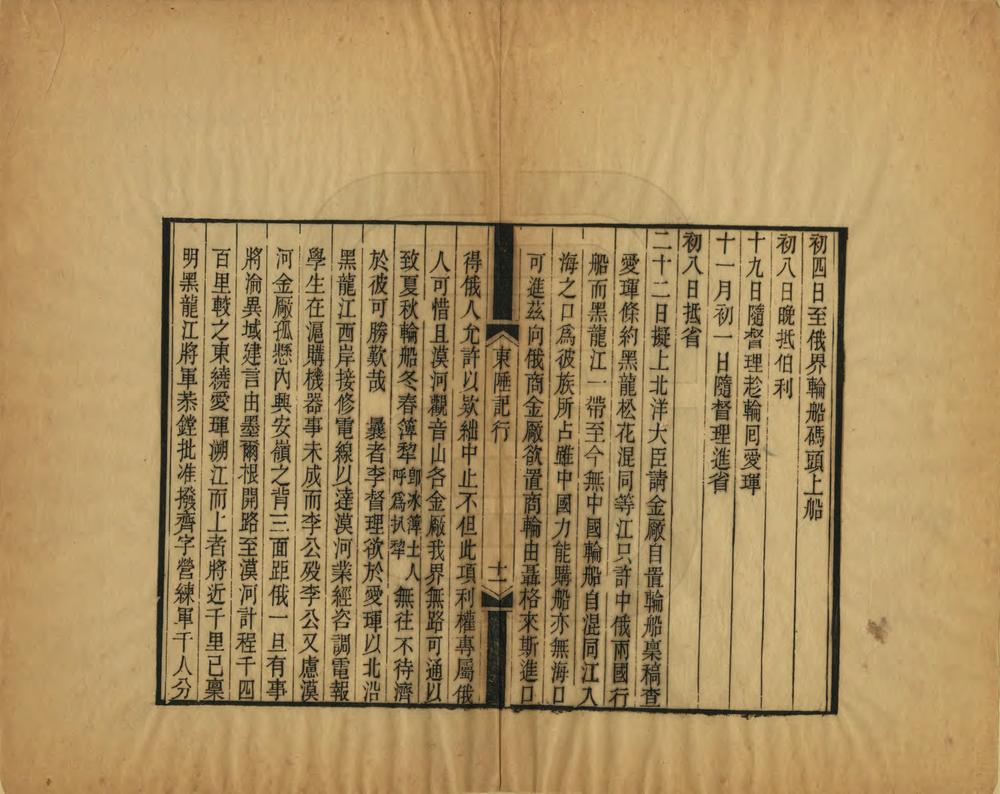 初四日至俄界輪船碼頭上船
初八日晚抵伯利
十九日隨督理趁輪回愛琿
十一月初一日隨督理進省
初八日抵省
二十二日擬上北洋大臣請金厰自置輪船稟稿查
愛琿條約黑龍松花混同等江只許中俄兩國行
船而黑龍江一帶至今無中國輪船自混同江入
海之口爲彼族所占雖中國力能購船亦無海口
可進茲向俄商金厰欲置商輪由聶格來斯進口
東陲記行
十一
得俄人允許以欵絀中止不但此項利權專屬俄
人可惜且漠河觀音山各金厰我界無路可通以
致夏秋輪船冬春簿犂卽冰簿土人呼爲扒犂無往不待濟
於彼可勝歎哉 曩者李督理欲於愛琿以北沿
黑龍江西岸接修電線以達漠河業經咨調電報
學生在滬購機器事未成而李公歿李公又慮漠
河金厰孤懸內興安嶺之背三面距俄一旦有事
將淪異域建言由墨爾根開路至漠河計程千四
百里較之東繞愛琿溯江而上者將近千里已稟
明黑龍江將軍恭鏜批准撥齊字營練軍千人分